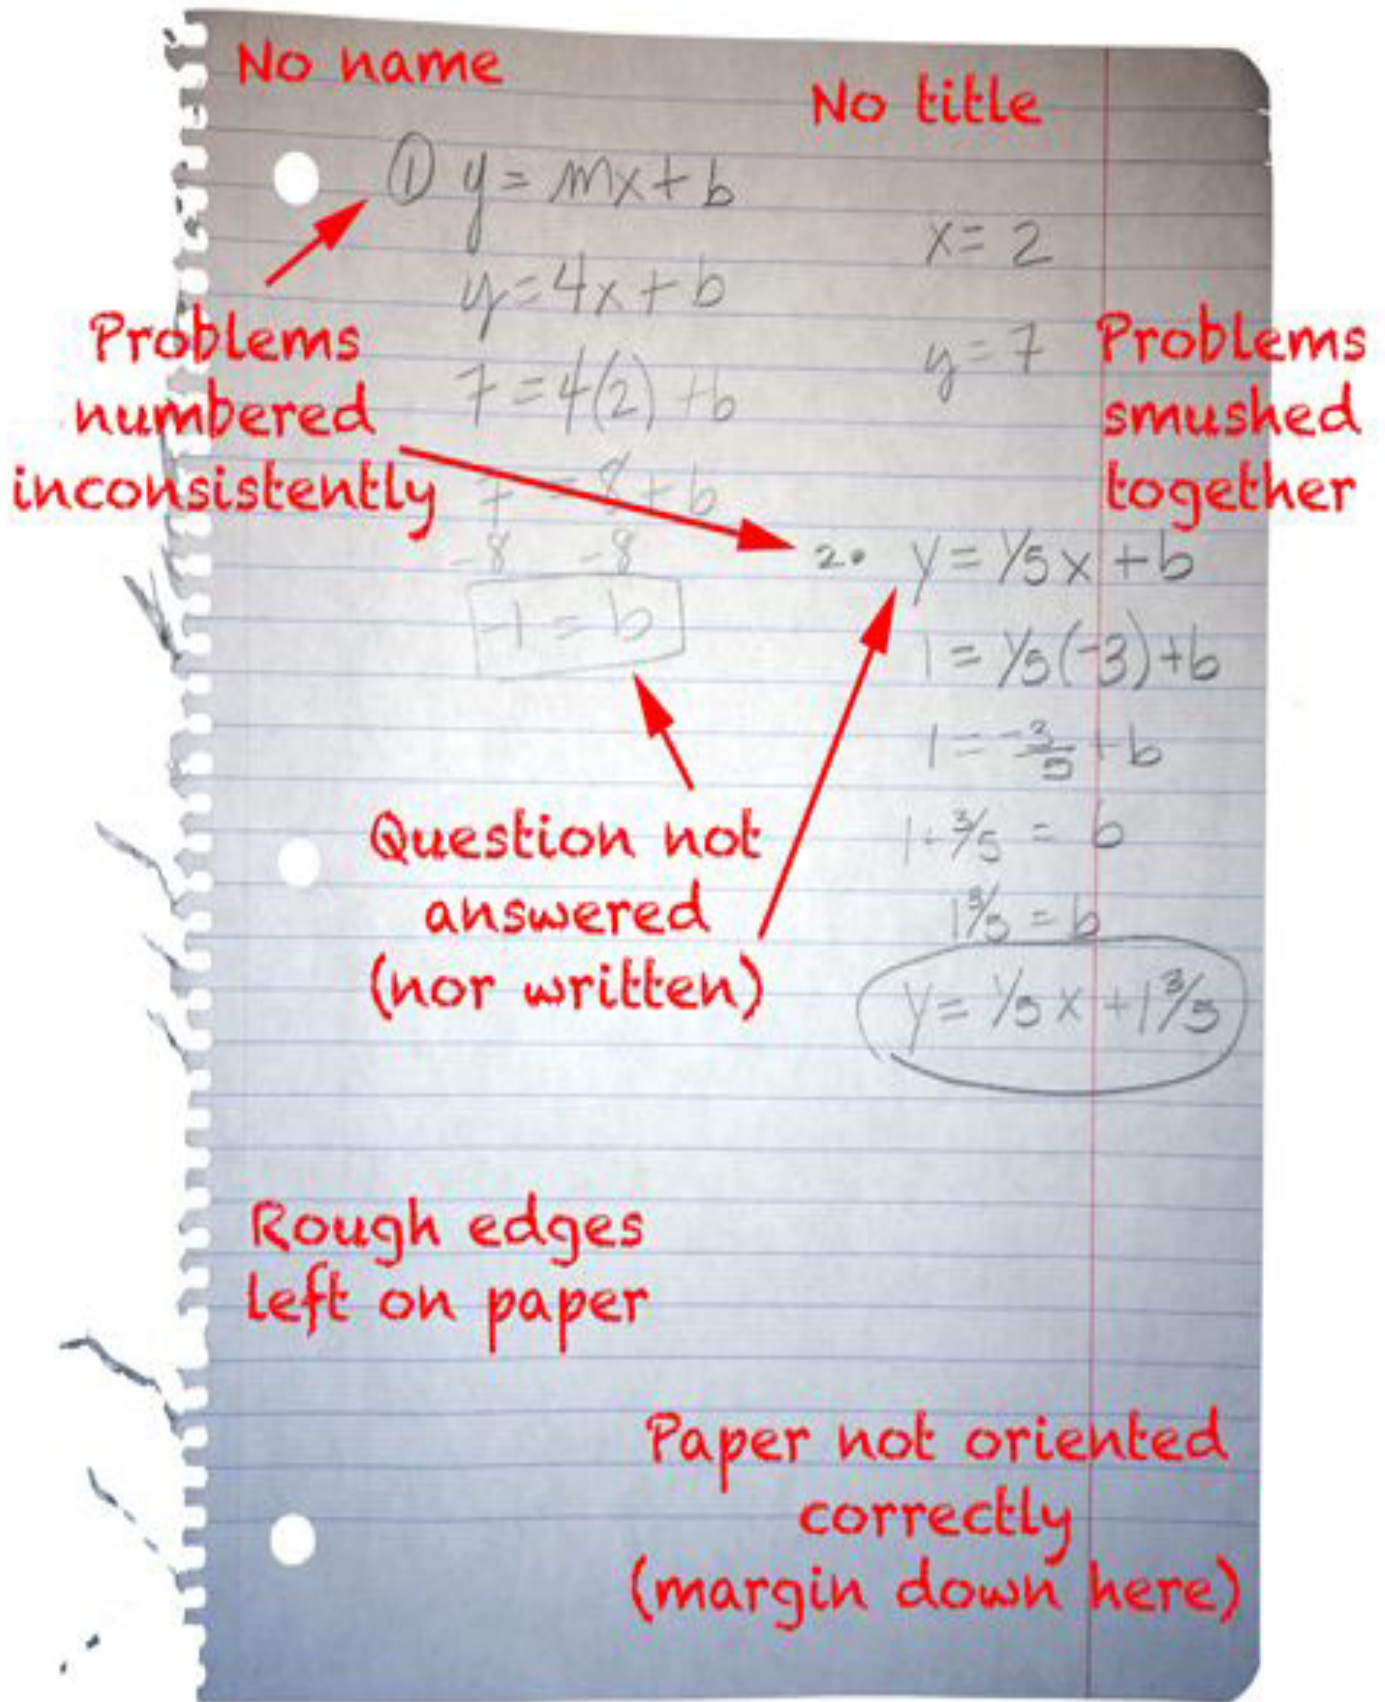 No name
No title
① y = mx + b
x = 2
y = 4x + b
y = 7
7 = 4(2) + b
7 = 8 + b
-8 -8
-1 = b
Problems
numbered
inconsistently
Problems
smushed
together
2. y = 1/5 x + b
1 = 1/5(-3) + b
1 = -3/5 + b
1 + 3/5 = b
1 3/5 = b
y = 1/5 x + 1 3/5
Question not
answered
(nor written)
Rough edges
left on paper
Paper not oriented
correctly
(margin down here)